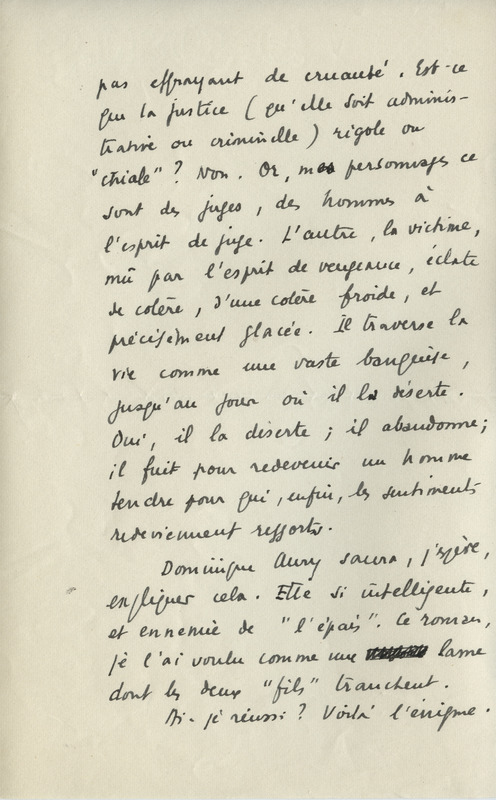 pas effrayant de cruauté. Est-ce
que la justice (qu'elle soit adminis-
trative ou criminelle) rigole ou
"chiale" ? Non. Or, mes personnages ce
sont des juges, des hommes à
l'esprit de juge. L'autre, la victime,
mû par l'esprit de vengeance, éclate
de colère, d'une colère froide, et
précisément glacée. Il traverse la
vie comme une vaste banquise,
jusqu'au jour où il la déserte.
Oui, il la déserte ; il abandonne ;
il fuit pour redevenir un homme
tendre pour qui, enfin, les sentiments
redeviennent ressorts.
Dominique Aury saura, j'espère,
expliquer cela. Elle si intelligente,
et ennemie de "l'épais". Ce roman,
je l'ai voulu comme une lame
dont les deux "fils" tranchent.
Ai-je réussi ? Voilà l'énigme.